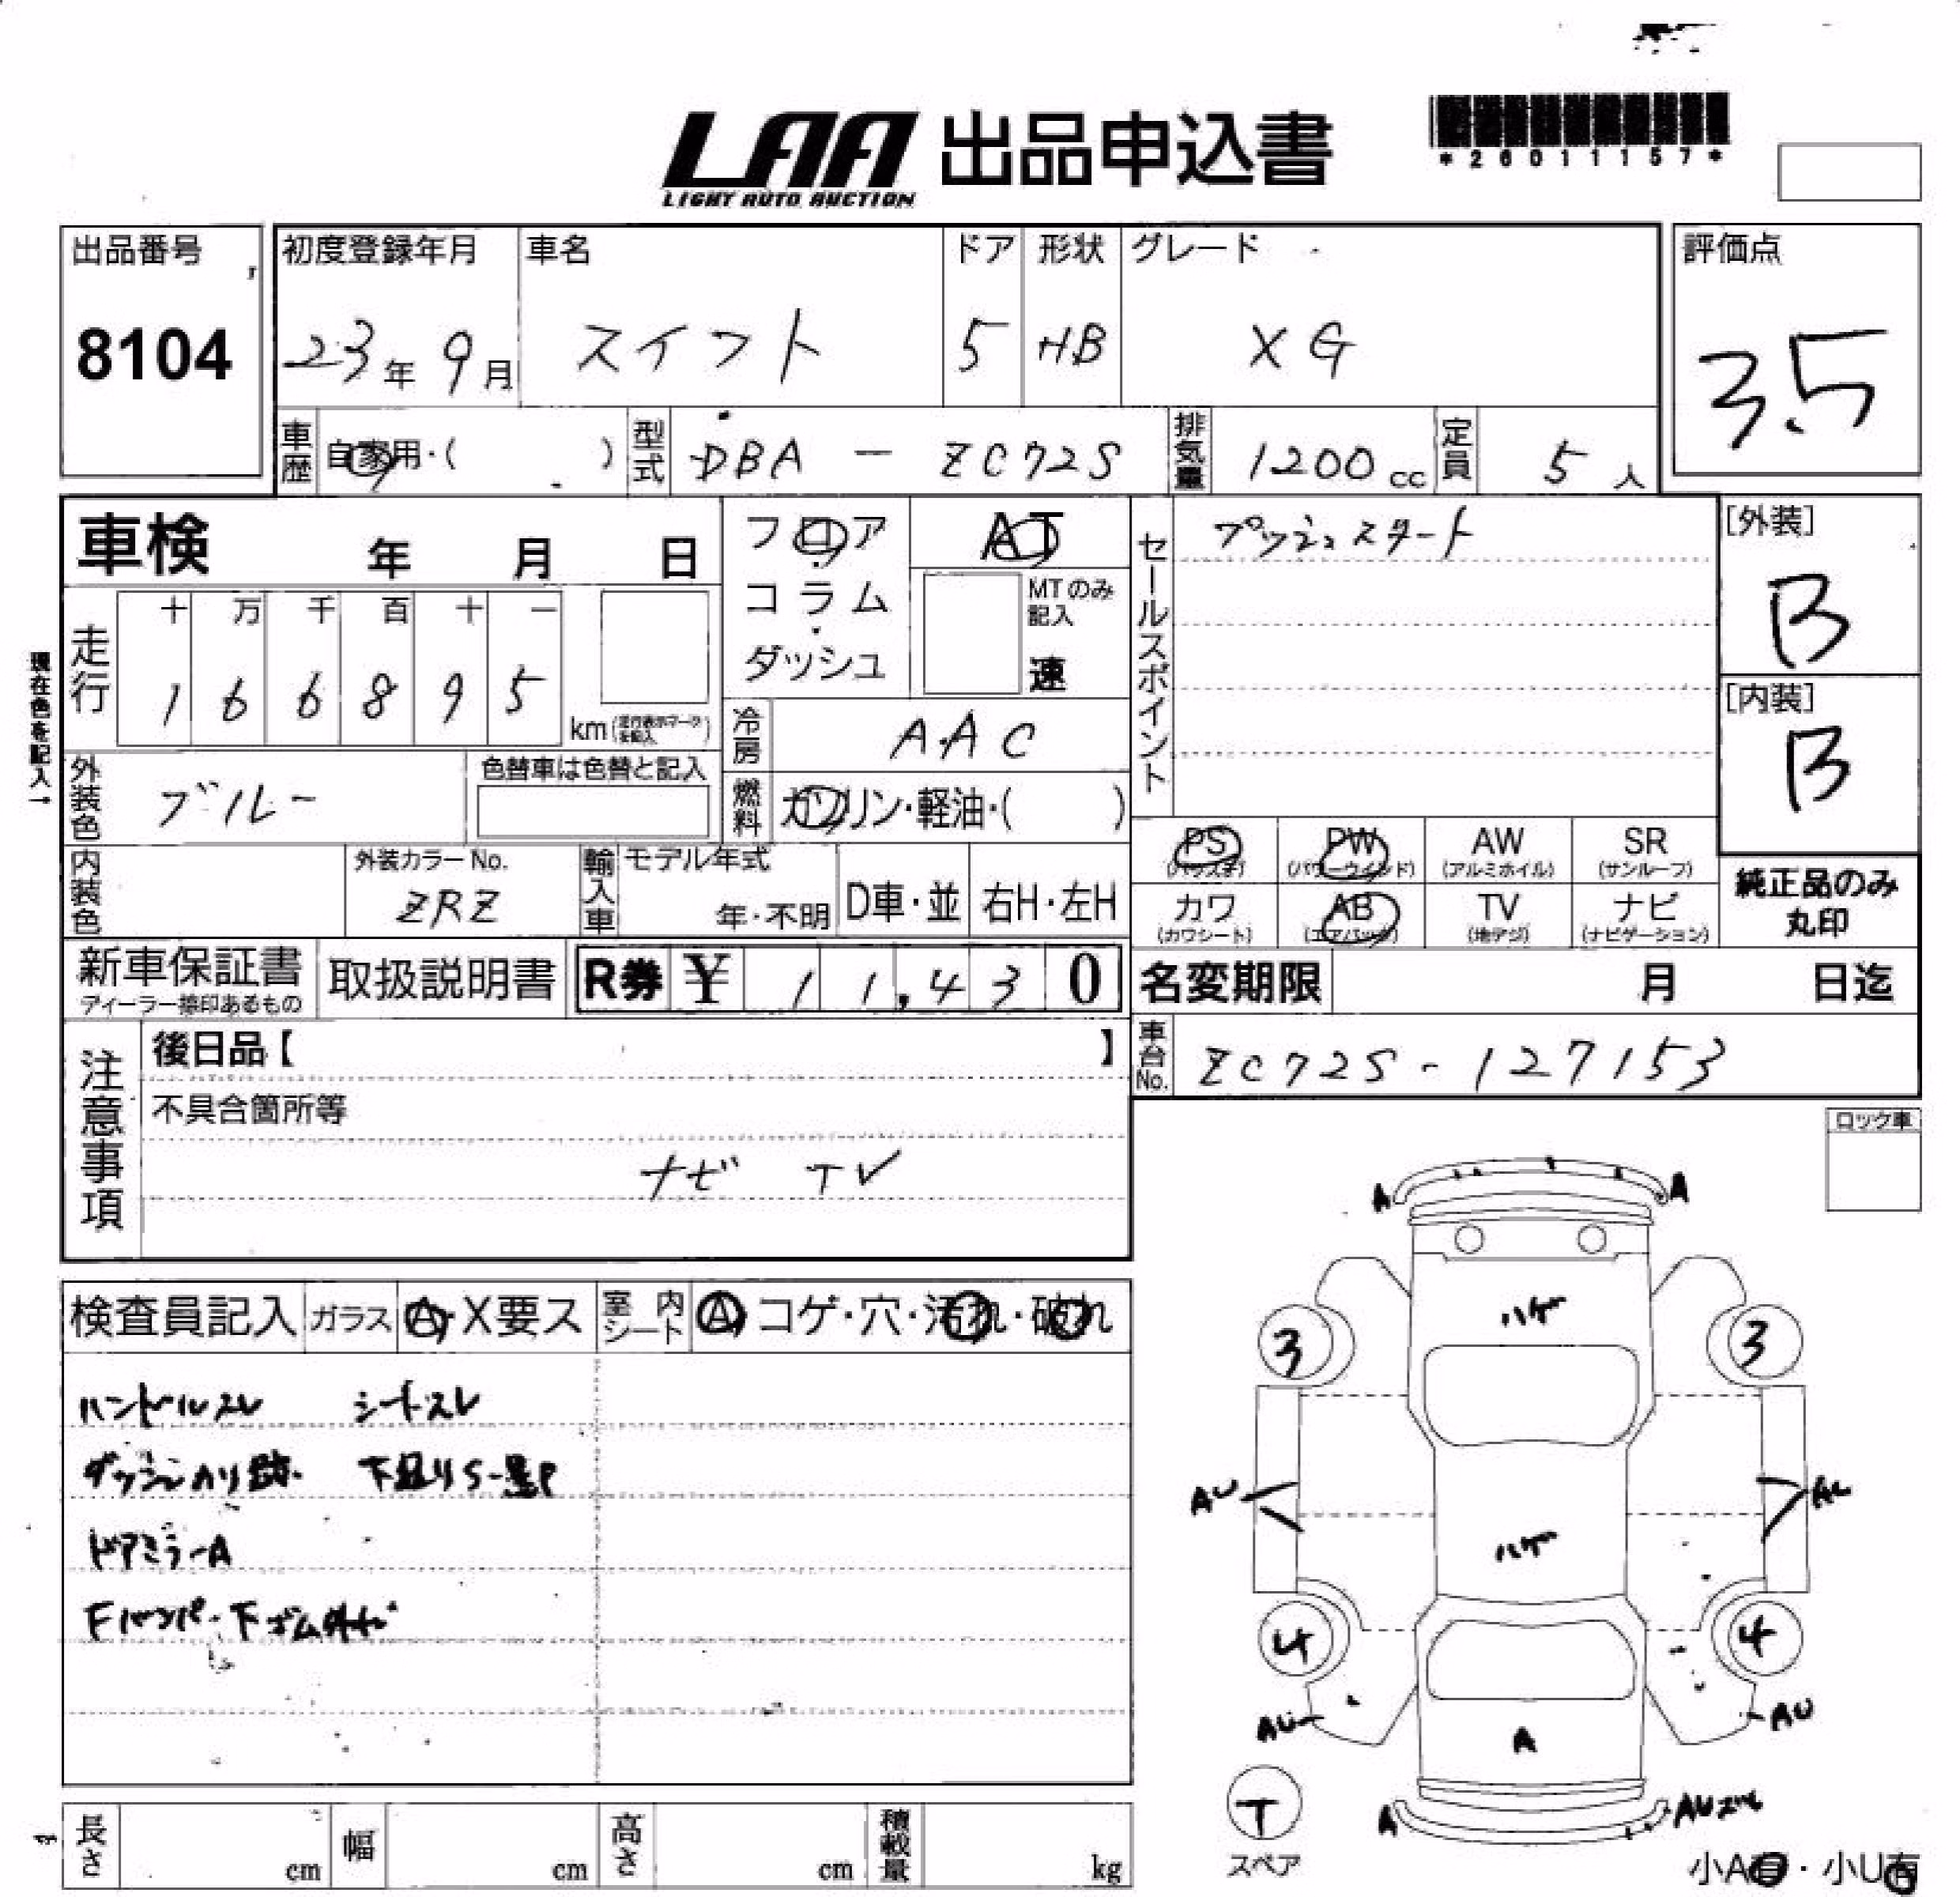 LAA 出品申込書
LIGHT AUTO AUCTION
*26011157*
出品番号
8104
初度登録年月 車名 ドア 形状 グレード
23年 9月 スイフト 5 HB XG
評価点
3.5
車歴 自家用・( ) 型式 DBA - ZC72S 排気量 1200cc 定員 5人
車検 年 月 日
フロア・コラム・ダッシュ
AT
MTのみ記入
速
セールスポイント
プッシュスタート
[外装]
B
[内装]
B
現在色を記入→
走行 十 万 千 百 十 一
1 6 6 8 9 5 km(走行表示マークを記入)
冷房 AAC
外装色 ブルー
色替車は色替と記入
燃料 ガソリン・軽油・( )
PS (パワステ) PW (パワーウインド) AW (アルミホイル) SR (サンルーフ)
カワ (カワシート) AB (エアバック) TV (地デジ) ナビ (ナビゲーション)
純正品のみ
丸印
内装色
外装カラーNo.
ZRZ
輸入車 モデル年式
年・不明 D車・並 右H・左H
新車保証書
ディーラー捺印あるもの
取扱説明書 R券 ¥ 11,430
名変期限 月 日迄
車台No. ZC72S-127153
注意事項
後日品【 】
不具合箇所等
ナビ TV
ロック車
検査員記入 ガラス A・X要ス 室内シート A・コゲ・穴・汚れ・破れ
ハンドルスレ シートスレ
ダッシュノリ跡 下廻りS-黒P
ドアミラーA
Fバンパー下ゴム外れ
A A
ハゲ
3 3
AU AU
ハゲ
4 4
AU AU
A
T
スペア
A AUズレ
小A有・小U有
長さ cm 幅 cm 高さ cm 積載量 kg